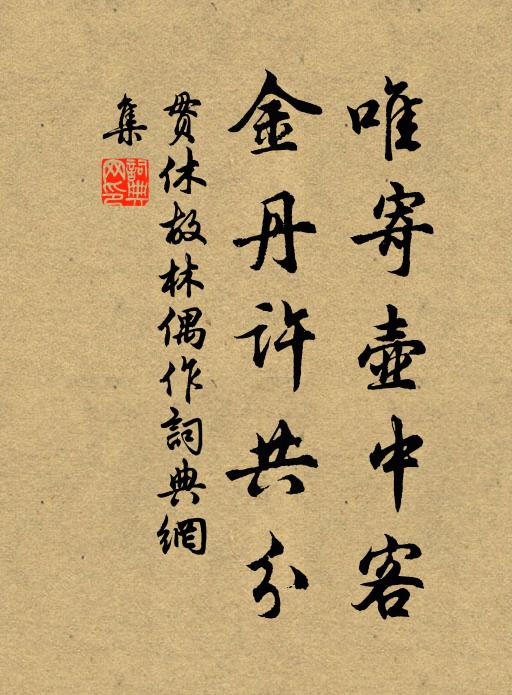 唯寄壺中客
金丹許共分
貫休故林偶作詞典網
集
詞典网印